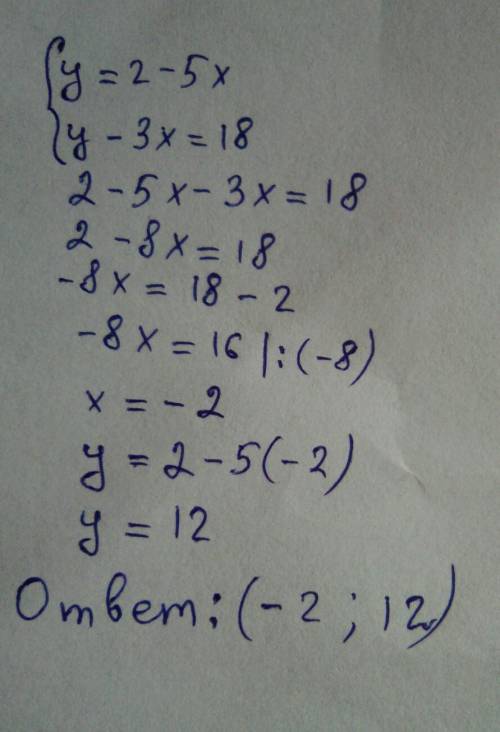 {y = 2 - 5x
y - 3x = 18
2 - 5x - 3x = 18
2 - 8x = 18
-8x = 18 - 2
-8x = 16 |:(-8)
x = -2
y = 2 - 5(-2)
y = 12
Ответ: (-2 ; 12)